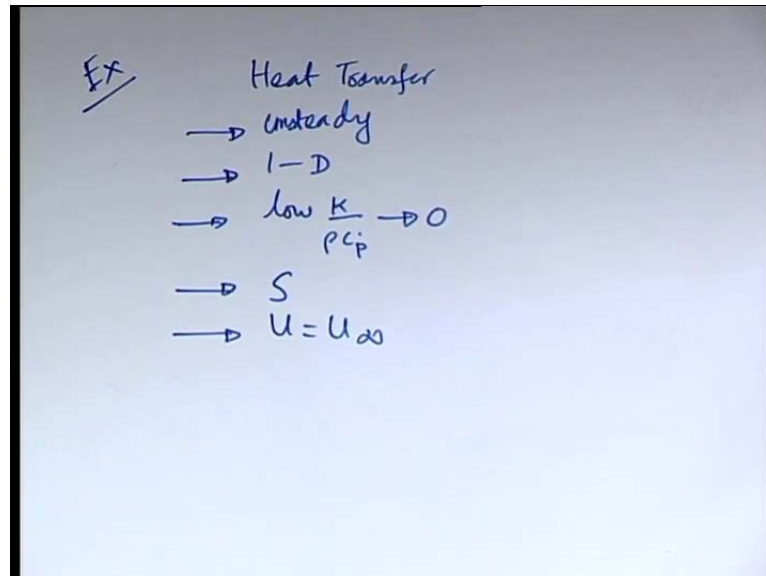 Ex Heat Transfer
→ unsteady
→ 1-D
→ low K/ρCp → 0
→ S
→ U = U∞